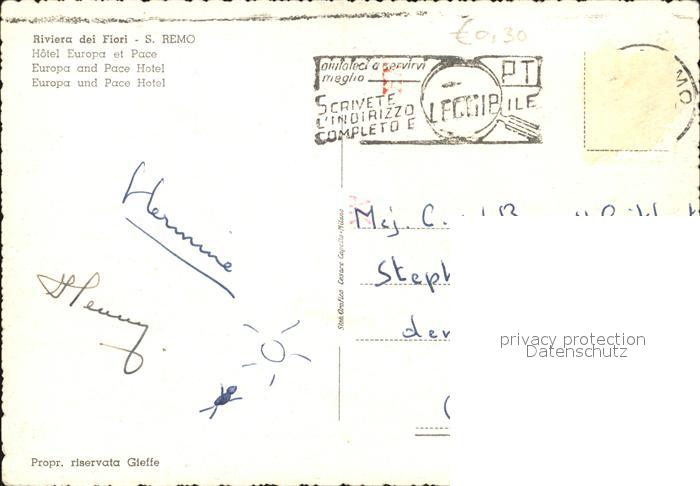 Riviera dei Fiori - S. REMO
Hôtel Europa et Pace
Europa and Pace Hotel
Europa und Pace Hotel
€0,30
aiutateci a servirvi
meglio
PT
SCRIVETE
L'INDIRIZZO
COMPLETO E LEGGIBILE
MO
Hermine
Henny
Maj. C.
Steph
den
Stab. Grafico Cesare Capello - Milano
privacy protection
Datenschutz
Propr. riservata Gieffe